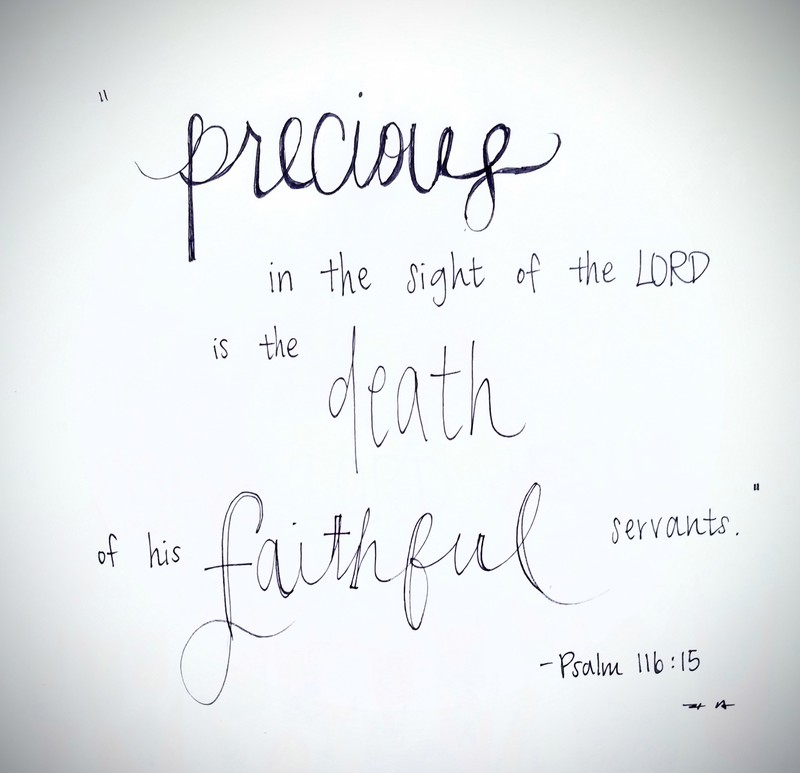 "precious
in the sight of the LORD
is the death
of his faithful servants."
-Psalm 116:15